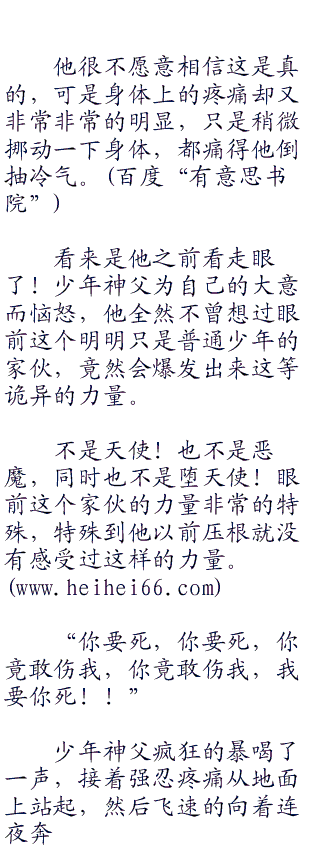 他很不愿意相信这是真
的，可是身体上的疼痛却又
非常非常的明显，只是稍微
挪动一下身体，都痛得他倒
抽冷气。(百度“有意思书
院”)
看来是他之前看走眼
了！少年神父为自己的大意
而恼怒，他全然不曾想过眼
前这个明明只是普通少年的
家伙，竟然会爆发出来这等
诡异的力量。
不是天使！也不是恶
魔，同时也不是堕天使！眼
前这个家伙的力量非常的特
殊，特殊到他以前压根就没
有感受过这样的力量。
(www.heihei66.com)
“你要死，你要死，你
竟敢伤我，你竟敢伤我，我
要你死！！”
少年神父疯狂的暴喝了
一声，接着强忍疼痛从地面
上站起，然后飞速的向着连
夜奔